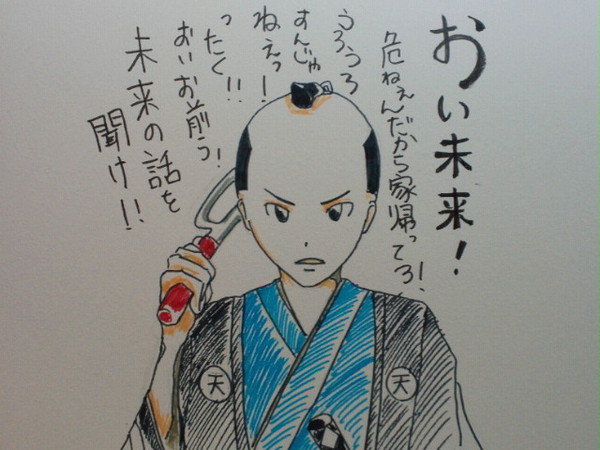 おい未来！
危ねぇんだから家帰ってろ！
うろうろ
すんじゃ
ねぇっ！
ったく！！
おいお前っ！
未来の話を
聞け！！
天
天